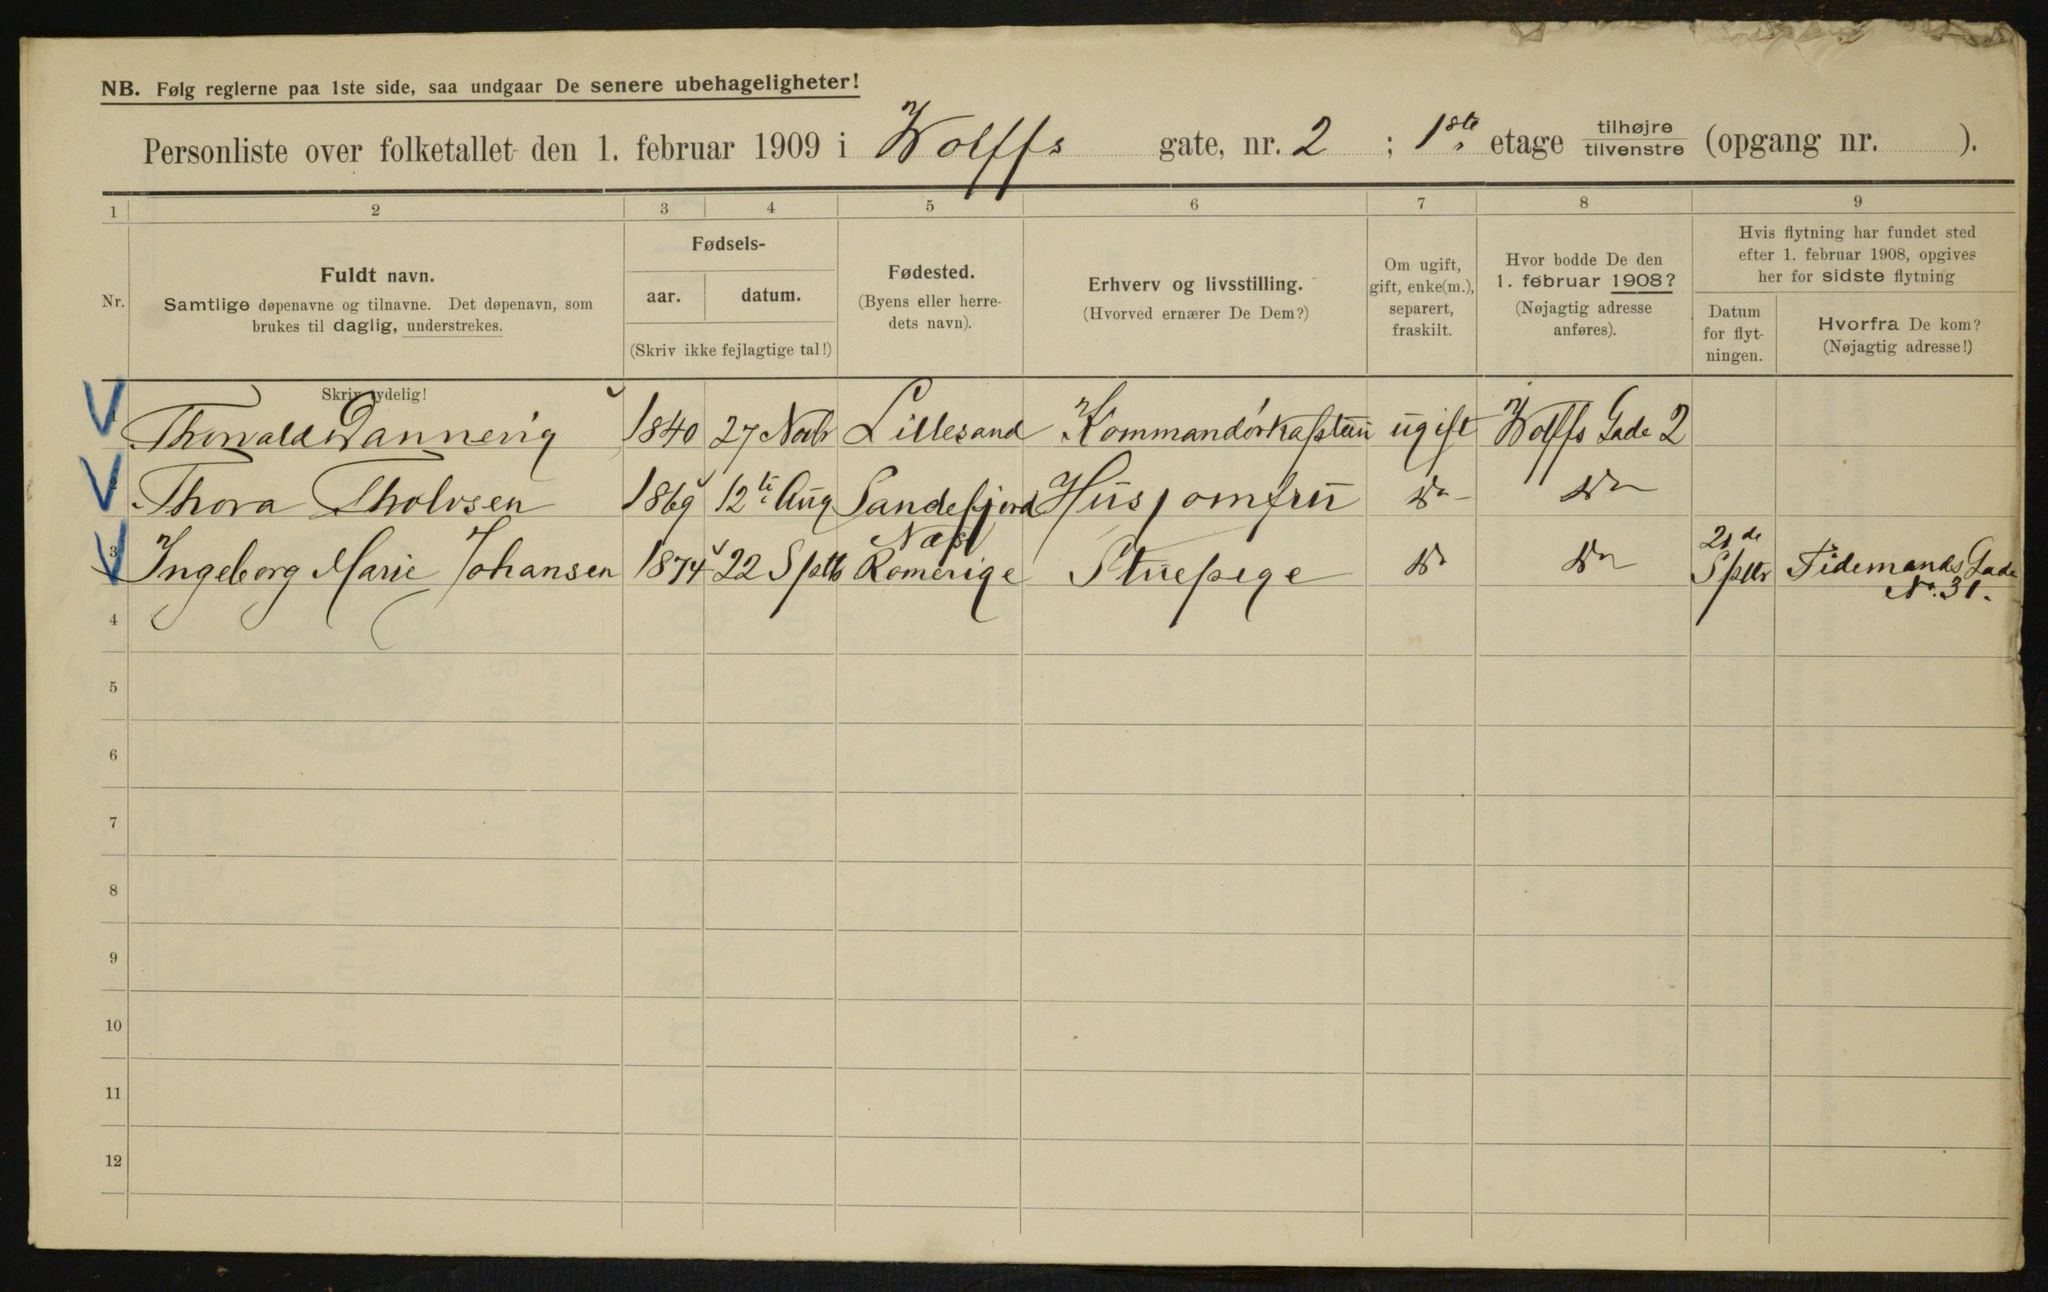 NB. Følg reglerne paa 1ste side, saa undgaar De senere ubehageligheter!
Personliste over folketallet den 1. februar 1909 i Wolffs gate, nr. 2 ; 1ste etage tilhøjre tilvenstre (opgang nr. ).
1 2 3 4 5 6 7 8 9
Nr.
Fuldt navn.
Samtlige døpenavne og tilnavne. Det døpenavn, som
brukes til daglig, understrekes.
Fødsels-
aar. datum.
(Skriv ikke fejlagtige tal!)
Fødested.
(Byens eller herre-
dets navn).
Erhverv og livsstilling.
(Hvorved ernærer De Dem?)
Om ugift,
gift, enke(m.),
separert,
fraskilt.
Hvor bodde De den
1. februar 1908?
(Nøjagtig adresse
anføres).
Hvis flytning har fundet sted
efter 1. februar 1908, opgives
her for sidste flytning
Datum
for flyt-
ningen.
Hvorfra De kom?
(Nøjagtig adresse!)
Skriv tydelig!
Thorvald Dannevig 1840 27 Novbr Lillesand Kommandørkaptein ugift Wolffs Gade 2
Thora Tholvsen 1869 12te Aug Sandefjord Husjomfru Do Do
3 Ingeborg Marie Johansen 1874 22 Sptb Næs Romerige Stuepige Do Do 21de Sptbr Tidemands Gade No. 31.
4
5
6
7
8
9
10
11
12